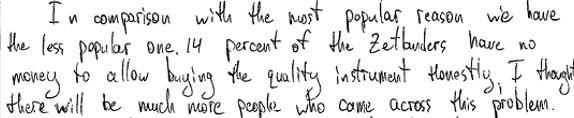 In comparison with the most popular reason we have
the less popular one. 14 percent of the Zetlanders have no
money to allow buying the quality instrument Honestly, I thought
there will be much more people who came across this problem.